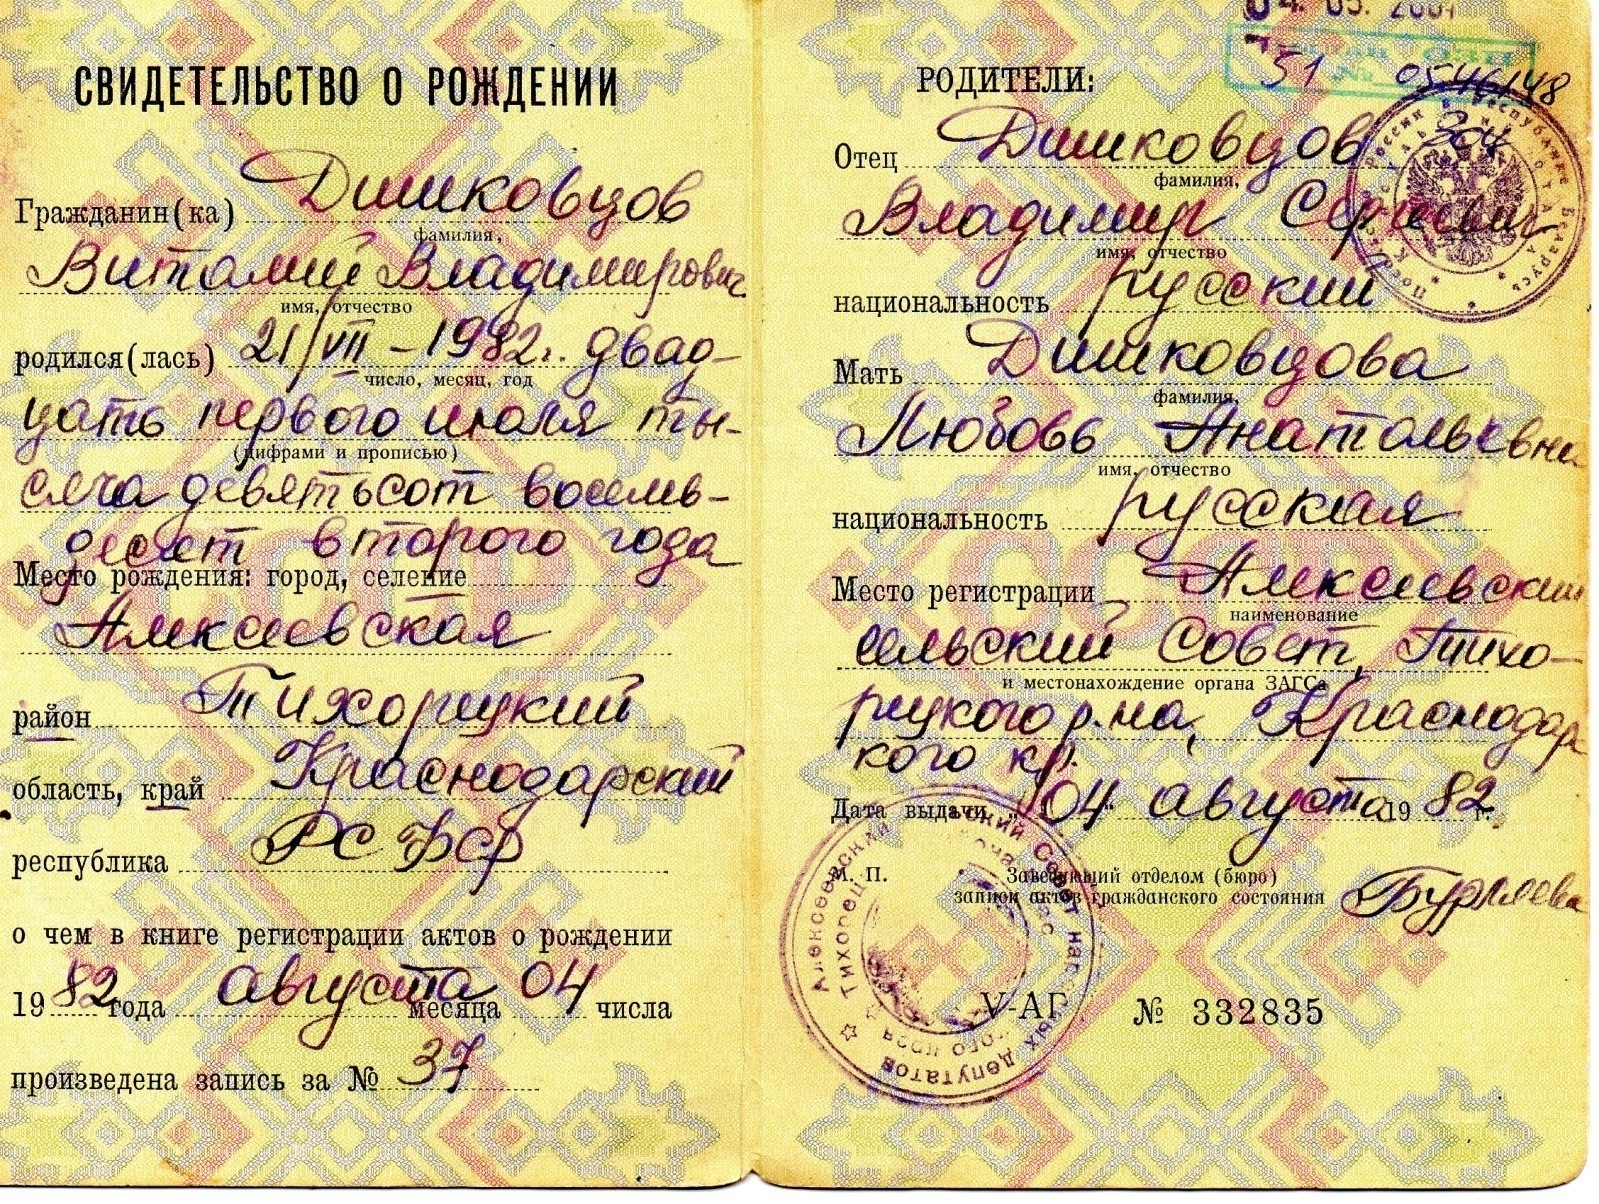 СВИДЕТЕЛЬСТВО О РОЖДЕНИИ
Гражданин(ка) Дишковцов
фамилия,
Виталий Владимирович
имя, отчество
родился(лась) 21/VII – 1982г. двад-
число, месяц, год
цать первого июля ты-
(цифрами и прописью)
сяча девятьсот восемь-
десят второго года
Место рождения: город, селение
Алексеевская
район Тихорецкий
область, край Краснодарский
республика РСФСР
о чем в книге регистрации актов о рождении
1982 года августа месяца 04 числа
произведена запись за № 37
04. 05. 2001
51 № 0546148
РОДИТЕЛИ:
Отец Дишковцов
фамилия,
Владимир Сергеевич
имя, отчество
национальность русский
Мать Дишковцова
фамилия,
Любовь Анатольевна
имя, отчество
национальность русская
Место регистрации Алексеевский
наименование
сельский Совет, Тихо-
и местонахождение органа ЗАГСа
рецкого р-на, Краснодар
кого кр.
Дата выдачи „04“ августа 1982 г.
М. П.
Заведующий отделом (бюро)
записи актов гражданского состояния
V-АГ № 332835